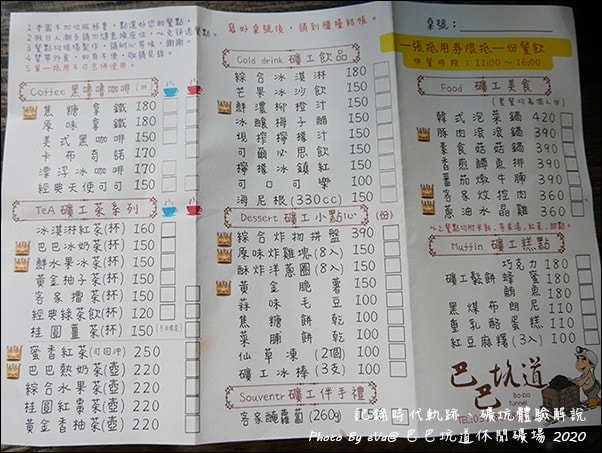 Coffee 黑嚕嚕咖啡
焦糖拿鐵 180
原味拿鐵 150
美式黑咖啡 150
卡布奇諾 170
漂浮冰咖啡 150
經典天使可可 150
TeA 礦工茶系列
冰淇淋紅茶(杯) 160
巴巴冰奶茶(杯) 150
鮮水果冰茶(杯) 150
黃金柚子茶(杯) 150
客家擂茶(杯) 150
經典綠茶飲(杯) 120
桂圓薑茶(杯) 150
蜜香紅茶(可回沖) 250
巴巴熱奶茶(壺) 220
綜合水果茶(壺) 220
桂圓紅棗茶(壺) 220
黃金香柚茶(壺) 220
寫好桌號後，請到櫃檯結帳。
Cold drink 礦工飲品
綜合冰淇淋 180
芒果冰沙飲 150
鮮濃柳橙汁 150
冰釀梅子醋 150
現榨檸檬汁 150
可爾必思飲 150
檸檬冰鎮紅 150
可口可樂 100
海尼根(330cc) 150
Dessert 礦工小點心 (份)
綜合炸物拼盤 390
原味炸雞塊(8入) 150
酥炸洋蔥圈(8入) 150
黃金脆薯 150
蒜味毛豆 100
焦糖餅乾 100
菜脯餅乾 100
仙草凍(2個) 100
礦工冰棒(3支) 100
Souventr 礦工伴手禮
客家醃蘿蔔(260g) 150
桌號：
一張抵用券限抵一份餐飲
供餐時段：11:00~16:00
Food 礦工美食
韓式泡菜鍋 420
豚肉滾滾鍋 390
素食菇菇鍋 390
香煎鱒魚排 390
番茄燉牛腩 390
客家炆控肉 360
蔥油水晶雞 360
Muffin 礦工糕點
巧克力 180
礦工鬆餅 蜂蜜 180
鮪魚 180
黑煤布朗尼 110
重乳酪蛋糕 110
紅豆麻糬(3入) 100
巴巴坑道
Ba-ba
Tunnel
記錄時代軌跡、礦坑體驗解說
Photo By eva@ 巴巴坑道休閒礦場 2020